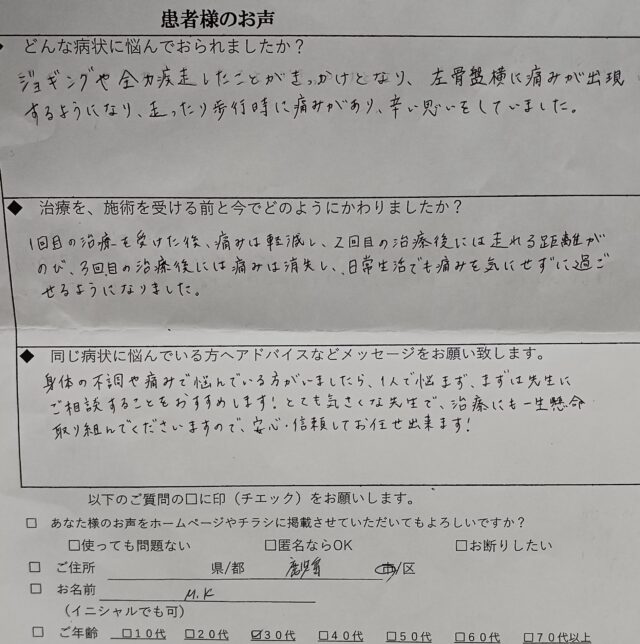 患者様のお声
◆ どんな病状に悩んでおられましたか？
ジョギングや全力疾走したことがきっかけとなり、左骨盤横に痛みが出現
するようになり、走ったり歩行時に痛みがあり、辛い思いをしていました。
◆ 治療を、施術を受ける前と今でどのようにかわりましたか？
1回目の治療を受けた後、痛みは軽減し、2回目の治療後には走れる距離が
のび、3回目の治療後には痛みは消失し、日常生活でも痛みを気にせずに過ご
せるようになりました。
◆ 同じ病状に悩んでいる方へアドバイスなどメッセージをお願い致します。
身体の不調や痛みで悩んでいる方がいましたら、1人で悩まず、まずは先生に
ご相談することをおすすめします！とても気さくな先生で、治療にも一生懸命
取り組んでくださいますので、安心・信頼してお任せ出来ます！
以下のご質問の□に印（チエック）をお願いします。
□ あなた様のお声をホームページやチラシに掲載させていただいてもよろしいですか？
□使っても問題ない □匿名ならOK □お断りしたい
□ ご住所 県/都 鹿児島 市/区
□ お名前 M.K
（イニシャルでも可）
□ ご年齢 □10代 □20代 ☑30代 □40代 □50代 □60代 □70代以上